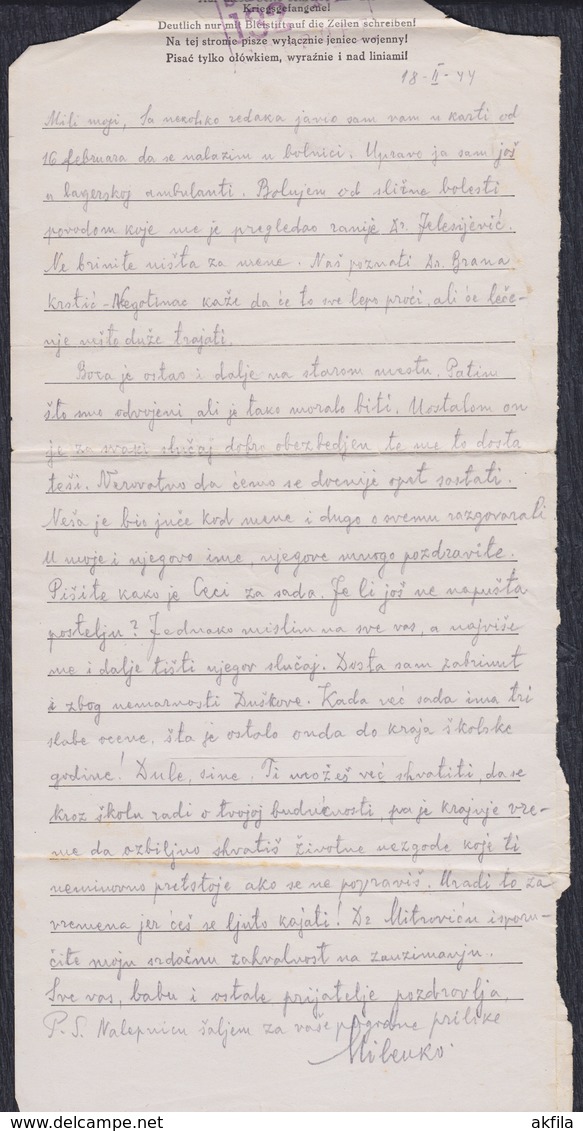 Kriegsgefangene!
Deutlich nur mit Bleistift auf die Zeilen schreiben!
Na tej stronie pisze wyłącznie jeniec wojenny!
Pisać tylko ołówkiem, wyraźnie i nad liniami!
18-II-44
Mili moji, Sa nekoliko redaka javio sam vam u karti od
16 februara da se nalazim u bolnici. Upravo ja sam još
u lagerskoj ambulanti. Bolujem od slične bolesti
povodom koje me je pregledao ranije Dr. Jelesijević.
Ne brinite ništa za mene. Naš poznati Dr. Brana
Krstić-Negotinac kaže da će to sve lepo proći, ali će leče-
nje nešto duže trajati.
Boca je ostao i dalje na starom mestu. Patim
što smo odvojeni, ali je tako moralo biti. Uostalom on
je za svaki slučaj dobro obezbedjen te me to dosta
teši. Verovatno da ćemo se docnije opet sastati.
Neša je bio juče kod mene i dugo o svemu razgovarali
U moje i njegovo ime, njegove mnogo pozdravite.
Pišite kako je Ceci za sada. Je li još ne napušta
postelju? Jednako mislim na sve vas, a najviše
me i dalje tišti njegov slučaj. Dosta sam zabrinut
i zbog nemarnosti Duškove. Kada već sada ima tri
slabe ocene, šta je ostalo onda do kraja školske
godine! Dule, sine, Ti možeš već shvatiti, da se
kroz školu radi o tvojoj budućnosti, pa je krajnje vre-
me da ozbiljno shvatiš životne nezgode koje ti
neminovno pretstoje ako se ne popraviš. Uradi to za
vremena jer ćeš se ljuto kajati! Dr Mitroviću isporu-
čite moju srdačnu zahvalnost na zauzimanju.
Sve vas, babu i ostale prijatelje pozdravlja,
P.S. Nalepnicu šaljem za vaše pogodne prilike
Milenko.
www.delcampe.net
akfila